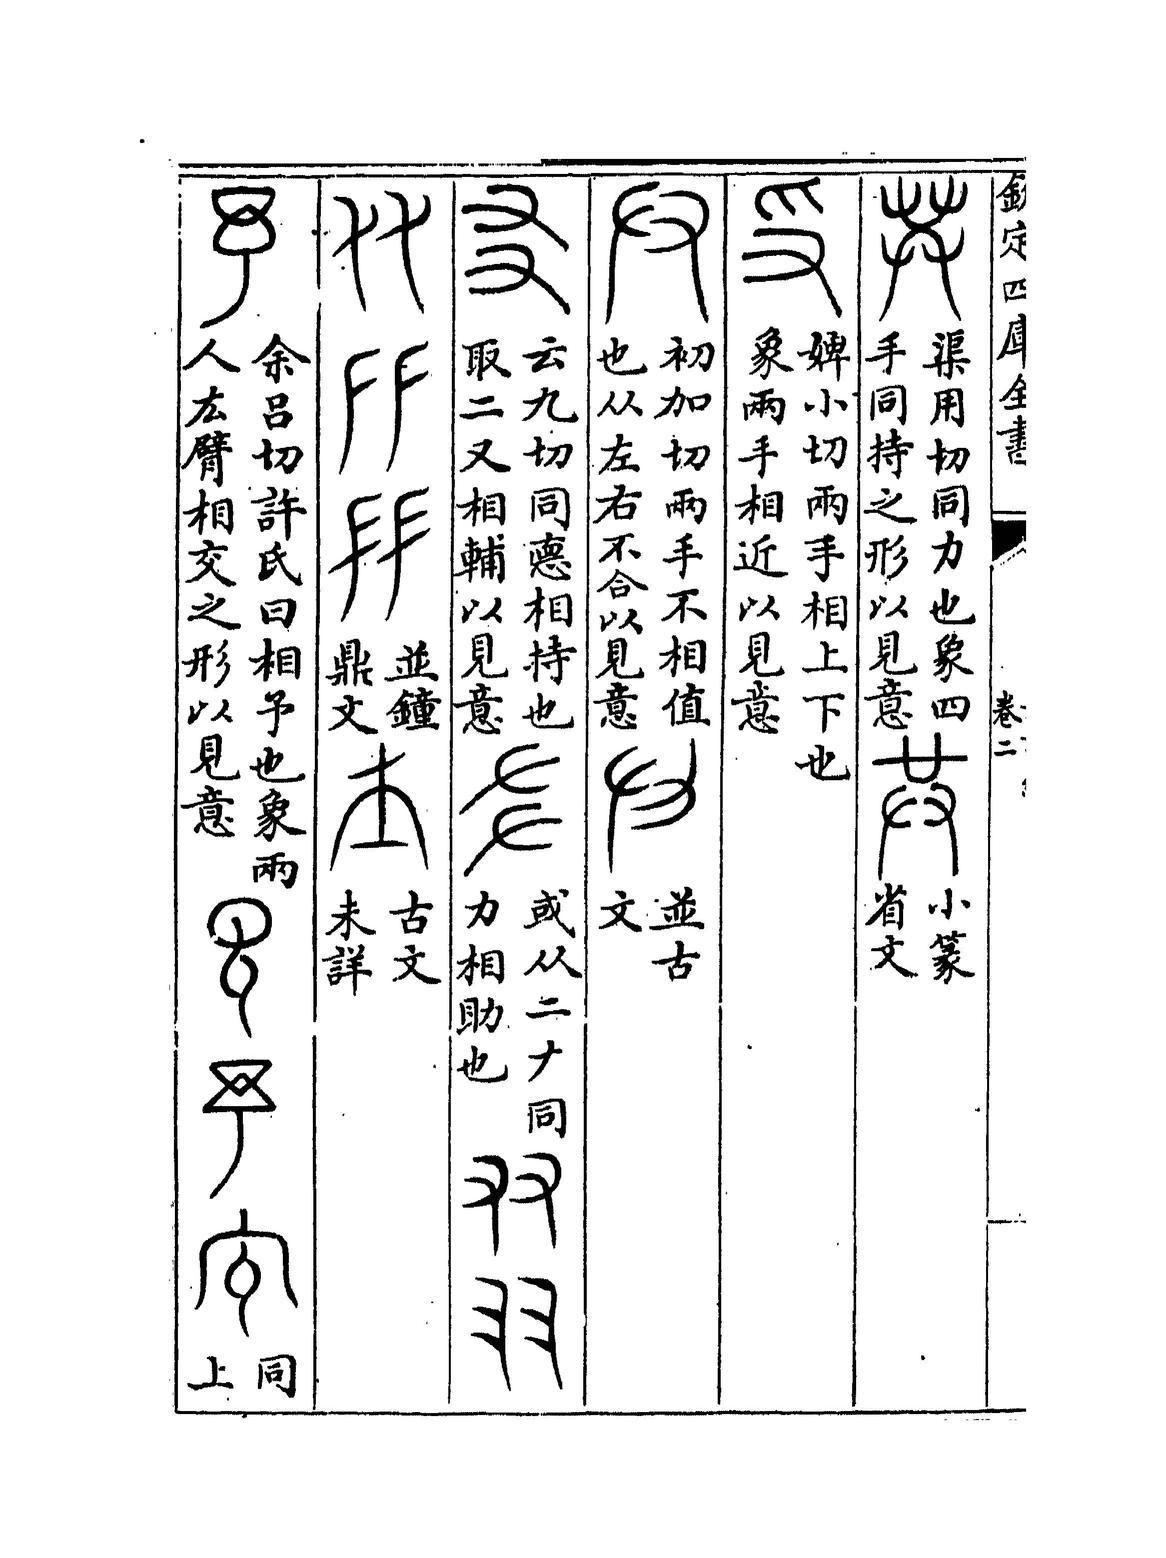 欽定四庫全書
卷二
共 渠用切同力也象四手同持之形以見意 小篆省文
𠬪 婢小切兩手相上下也象兩手相近以見意
初加切兩手不相值也从左右不合以見意 並古文
友 云九切同悳相持也取二又相輔以見意 或从二𠂇同力相助也
並鐘鼎文 古文未詳
予 余呂切許氏曰相予也象兩人厷臂相交之形以見意 同上